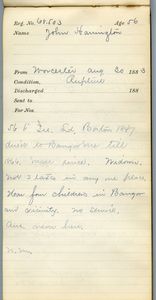 Reg. No. 68.503 Age 56
Name John Harrington
From Worcester Aug 30 1883
Condition, Rupture
Discharged 188
Sent to
For Nos.
56 b Ire. Ld, Boston 1847
direct to Bangor Me till
Widower.
not 2 years in any one place.
Has four children in Bangor
and vicinity. no service.